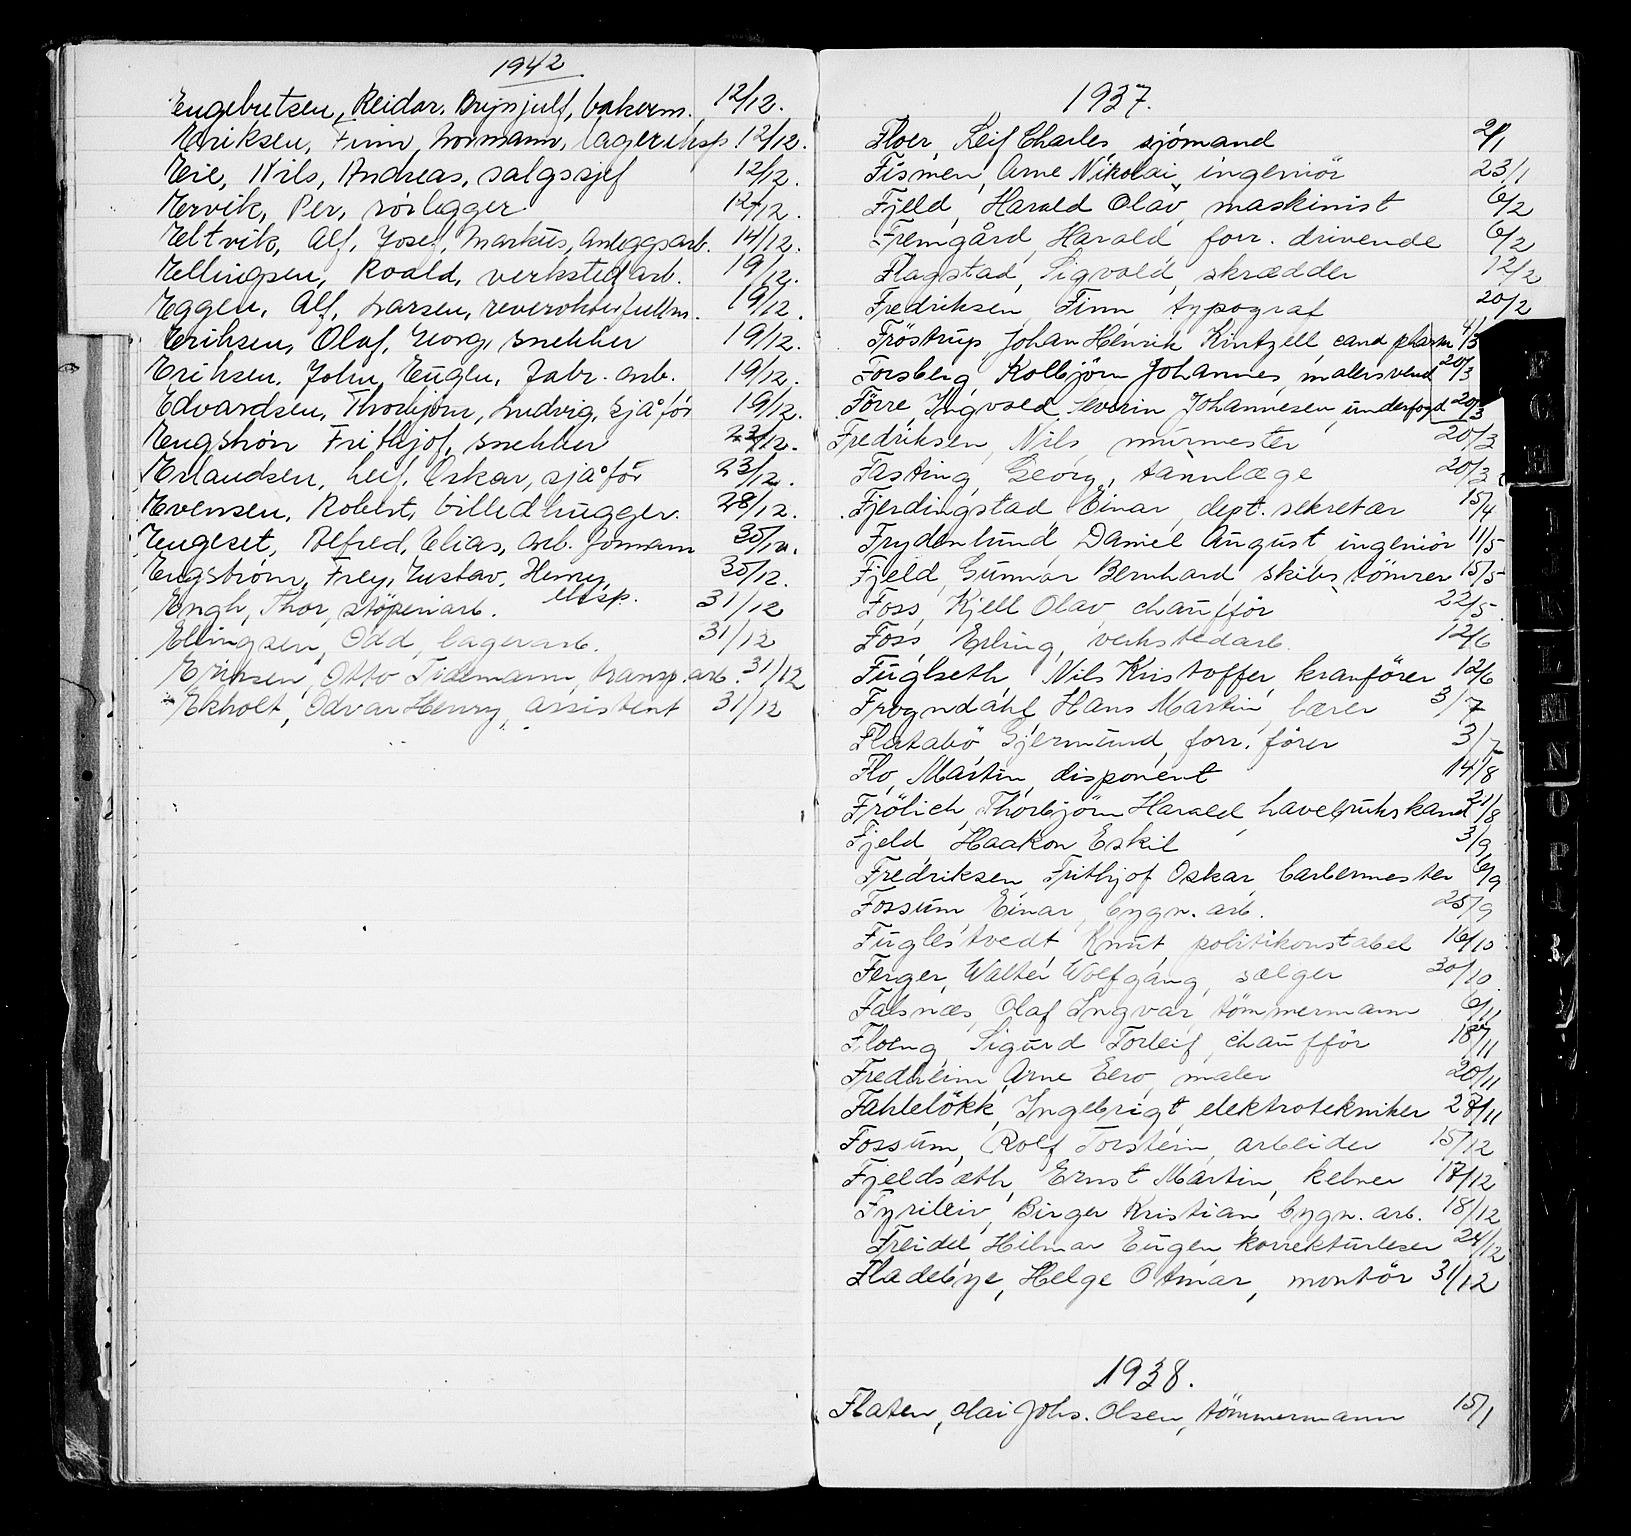 1942
Engebretsen, Reidar, Brynjulf, bakerm. 12/12.
Eriksen, Finn, Normann, lagereksp. 12/12.
Eie, Nils, Andreas, salgssjef 12/12.
Ervik, Per, rörlegger 12/12.
Eltvik, Alf, Josef, Markus, Anleggsarb. 14/12.
Ellingsen, Roald, verkstedarb. 19/12.
Eggen, Alf, Larsen, 19/12.
Eriksen, Olaf, Georg, snekker 19/12.
Eriksen, John, Eugen, Fabr. arb. 19/12.
Edvardsen, Thorbjörn, Ludvig, sjåför 19/12.
Engström Frithjof, snekker 23/12.
Erlandsen, Leif, Oskar, sjåför 23/12.
Evensen, Robert, billedhugger. 28/12.
Engeset, Alfred, Elias, arb. formann 30/12.
Engström, Frey, Gustav, Henry, eksp. 30/12.
Engh, Thor, stöperiarb. 31/12
Ellingsen, Odd, lagerarb. 31/12
Eriksen, Otto Tidemann, transp.arb. 31/12
Ekholt, Odvar Henry, assistent 31/12
1937.
Floer, Leif Charles, sjömand 2/1
Fismen, Arne Nikolai, ingeniör 23/1
Fjeld, Harald Olav, maskinist 6/2
Fremgård, Harald, forr. drivende 6/2
Flagstad, Sigvald, skrædder 12/2
Fredriksen, Finn typograf 20/2
Fröstrup, Johan Henrik Kintzell, cand pharm 4/3
Forsberg, Kolbjörn Johannes, malersvend 20/3
Förre, Ingvald Severin Johannesen, underfogd 20/3
Fredriksen, Nils, murmester 20/3
Fasting, Georg, tannlæge 20/3
Fjerdingstad Einar, dept. sekretær 15/4
Frydenlund Daniel August, ingeniör 11/5
Fjeld, Gunnar Bernhard, skibstömrer 15/5
Foss, Kjell Olav, chaufför 22/5
Foss, Erling, verkstedarb. 12/6
Fuglseth, Nils Kristoffer, kranförer 12/6
Frogndahl, Hans Martin, bærer 3/7
Flatabö Gjermund, forr. förer 3/7
Flo, Martin, disponent 14/8
Frölich, Thorbjörn Harald, havebrukskand 21/8
Fjeld, Haakon Eskil 3/9
Fredriksen, Frithjof Oskar, barbermester 6/9
Fossum, Einar, bygn. arb. 25/9
Fuglestvedt, Knut, politikonstabel 16/10
Ferger, Walter Wolfgang, sælger 30/10
Falsnæs, Olaf Ingvar, tömmermann 6/11
Floeng, Sigurd Torleif, chaufför 18/11
Fredheim, Arne Eero, maler 20/11
Fahlelökk, Ingebrigt, elektrotekniker 27/11
Fossum, Rolf Torstein, arbeider 15/12
Fjeldsæth, Ernst Martin, kelner 17/12
Fyrileiv, Birger Kristian, bygn. arb. 18/12
Freidel, Hilmar Eugen, korrekturleser 24/12
Fladebye, Helge Otmar, montör 31/12
1938.
Flaten, Olai Johs. Olsen, tömmermann 15/1
F
G
H
I
J
K
L
M
N
O
P
R